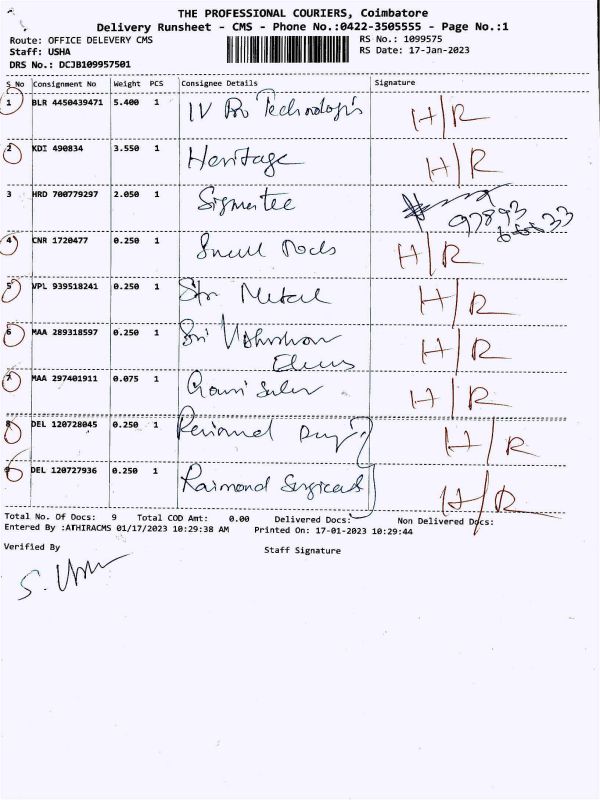 THE PROFESSIONAL COURIERS, Coimbatore
Delivery Runsheet - CMS - Phone No.:0422-3505555 - Page No.:1
Route: OFFICE DELEVERY CMS
RS No.: 1099575
Staff: USHA
RS Date: 17-Jan-2023
DRS No.: DCJB109957501
S No Consignment No Weight PCS Consignee Details Signature
1 BLR 4450439471 5.400 1 Technologis H/R
2 KDI 490834 3.550 1 Heritage H/R
3 HRD 700779297 2.050 1 97893
4 CNR 1720477 0.250 1 H/R
5 VPL 939518241 0.250 1 Metal H/R
6 MAA 289318597 0.250 1 Sri H/R
7 MAA 297401911 0.075 1 H/R
8 DEL 120728045 0.250 1 H/R
9 DEL 120727936 0.250 1 Raimond Surgicals H/R
Total No. Of Docs: 9 Total COD Amt: 0.00 Delivered Docs: Non Delivered Docs:
Entered By :ATHIRACMS 01/17/2023 10:29:38 AM Printed On: 17-01-2023 10:29:44
Verified By Staff Signature